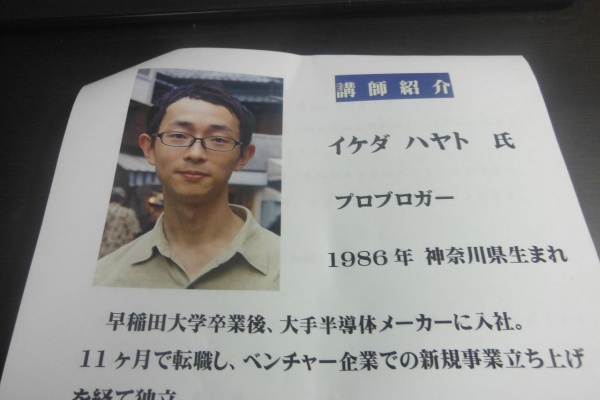 講師紹介
イケダ ハヤト 氏
プロブロガー
1986年 神奈川県生まれ
早稲田大学卒業後、大手半導体メーカーに入社。
11ヶ月で転職し、ベンチャー企業での新規事業立ち上げ
を経て独立